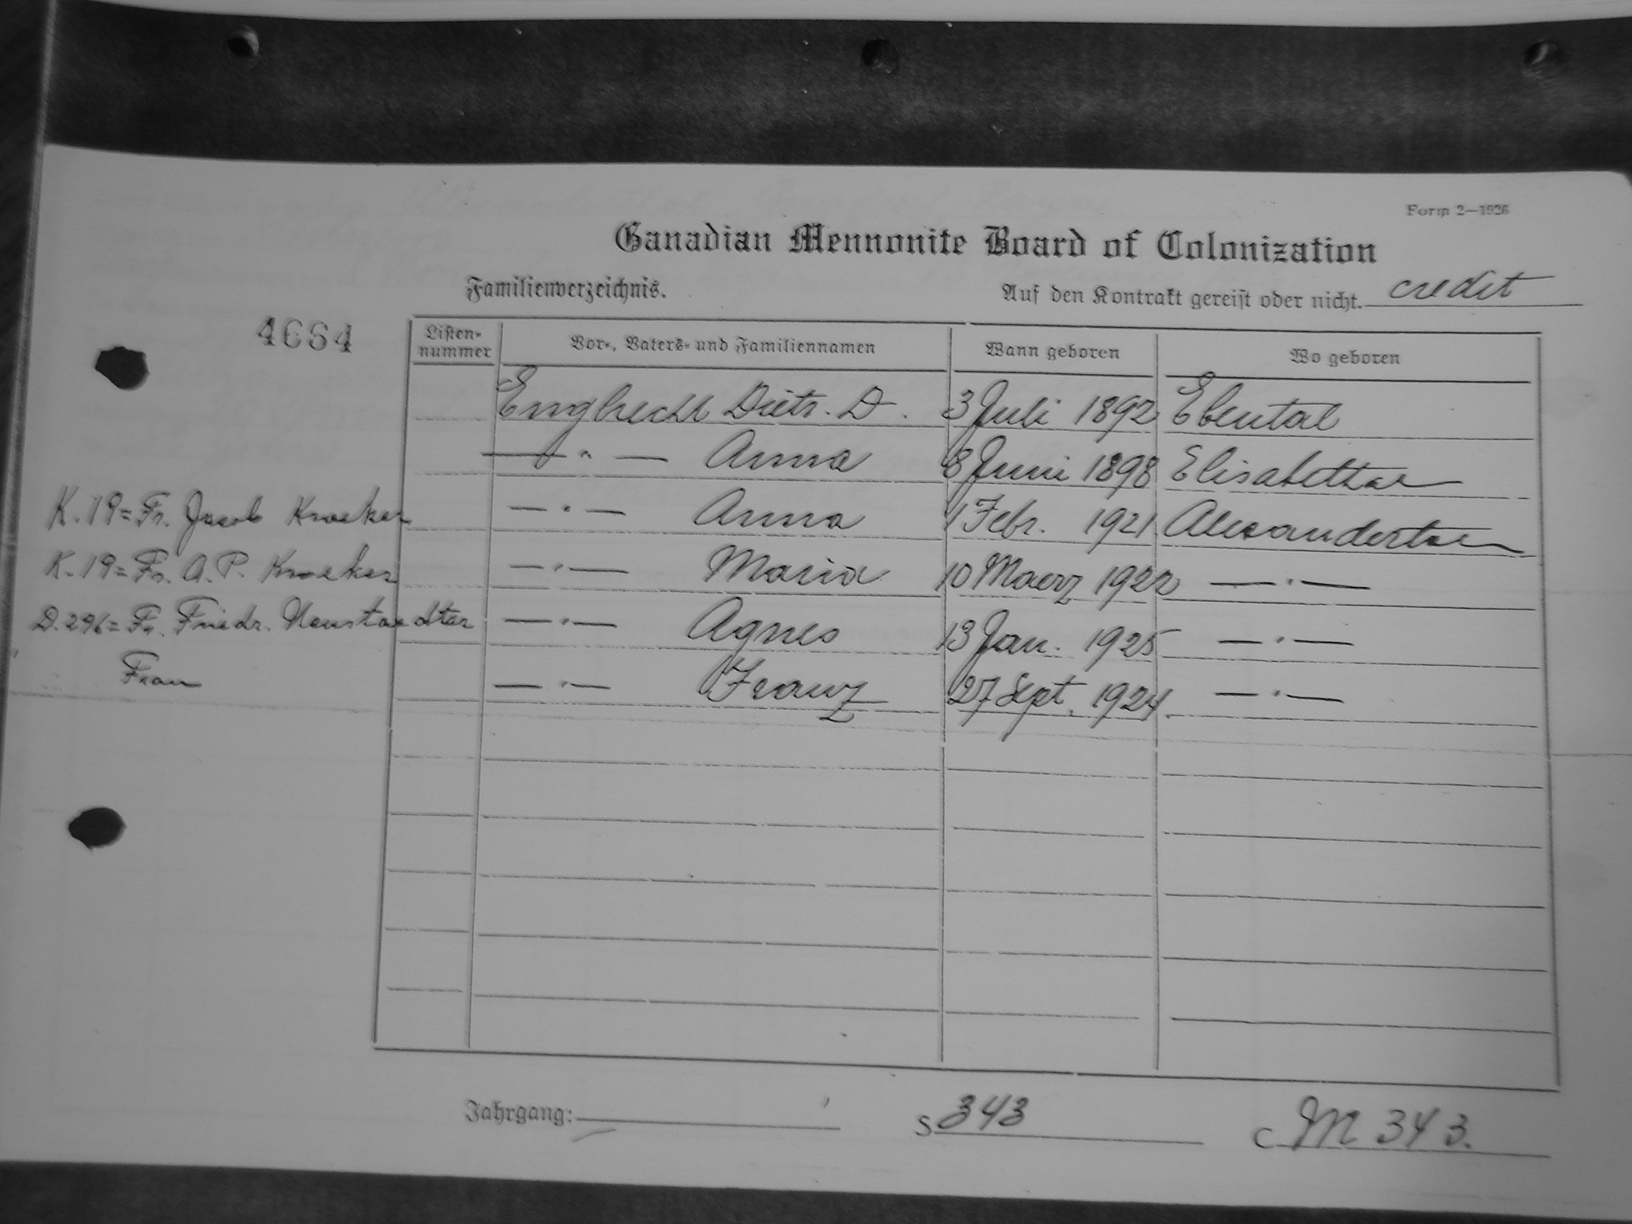 Form 2—1926
Canadian Mennonite Board of Colonization
Familienverzeichnis.
Auf den Kontrakt gereist oder nicht. credit
4664
Listen-nummer Vor-, Vaters- und Familiennamen Wann geboren Wo geboren
Engbrecht Dietr. D. 3 Juli 1892 Ebental
— " — Anna 8 Juni 1898 Elisabethal
K.19= Fr. Jacob Kroeker — " — Anna 1 Febr. 1921 Alexandertal
K.19= Fr. A.P. Kroeker — " — Maria 10 Maerz 1922 — " —
D.296= Fr. Friedr. Neustaedter — " — Agnes 13 Jan. 1925 — " —
Frau — " — Franz 27 Sept. 1924 — " —
Jahrgang: S 343 C M 343.